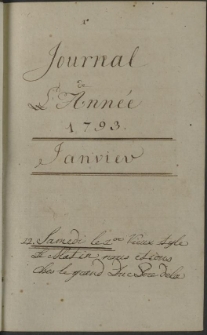 Journal
de
L'Année
1793.
Janvier
Samedi le 1er Vieux style
le Matin nous etions
chés le grand Duc